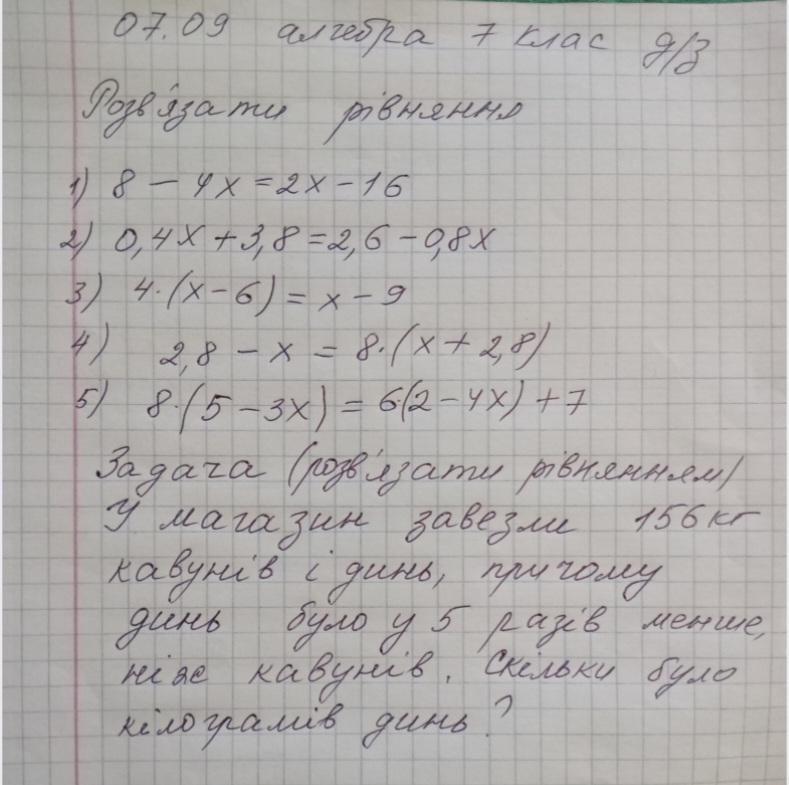 07.09 алгебра 7 клас д/з
Розв'язати рівняння
1) 8 - 4x = 2x - 16
2) 0,4x + 3,8 = 2,6 - 0,8x
3) 4·(x - 6) = x - 9
4) 2,8 - x = 8·(x + 2,8)
5) 8·(5 - 3x) = 6·(2 - 4x) + 7
Задача (розв'язати рівнянням)
У магазин завезли 156 кг
кавунів і динь, причому
динь було у 5 разів менше,
ніж кавунів. Скільки було
кілограмів динь?